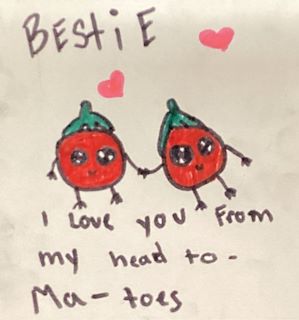 BEStiE
I Love you From
my head to-
Ma-toes